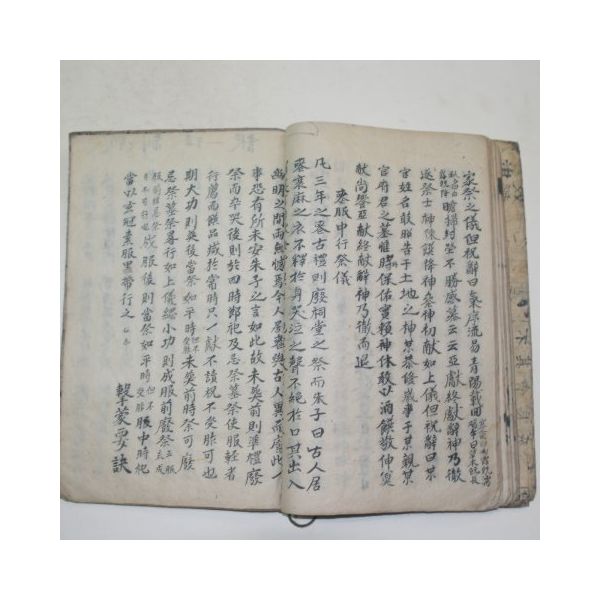 家祭之儀但祝辭曰氣序流易青陽載回
瞻掃封塋不勝感慕云云亞獻終獻辭神乃徹
遂祭土神陳饌降神參神初献如上儀但祝辭曰某
官姓名敢昭告于土地之神某恭修歲事于某親某
官府君之墓惟時保佑實賴神休敢以酒饌敬伸奠
献尚饗亞献終献辭神乃徹而退
喪服中行祭儀
凡三年之喪古禮則廢祠堂之祭而朱子曰古人居
喪衰麻之衣不釋於身哭泣之聲不絶於口其出入
幽明之間兩無憾焉今人居喪與古人異而廢此一
事恐有所未安朱子之言如此故未葬前則準禮廢
祭而卒哭後則於四時節祀及忌祭墓祭使服輕者
行薦而饌品减於常時只一献不讀祝不受胙可也
期大功則葬後當祭如平時但不受胙未葬前時祭可廢
忌祭墓祭畧行如上儀緦小功則成服前廢祭五服未成
服前雖忌祭亦不可行也成服後則當祭如平時但不受胙服中時祀
當以玄冠素服黑帶行之
擊蒙要訣